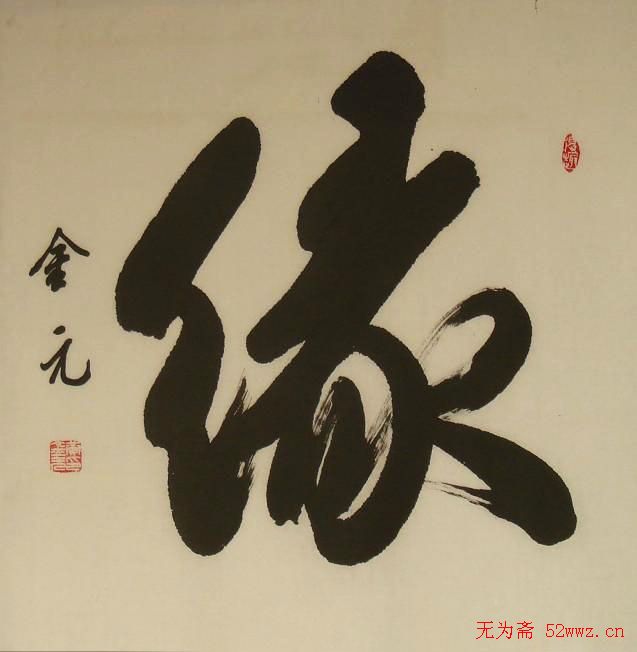 缘
金元
无为斋 52wwz.cn